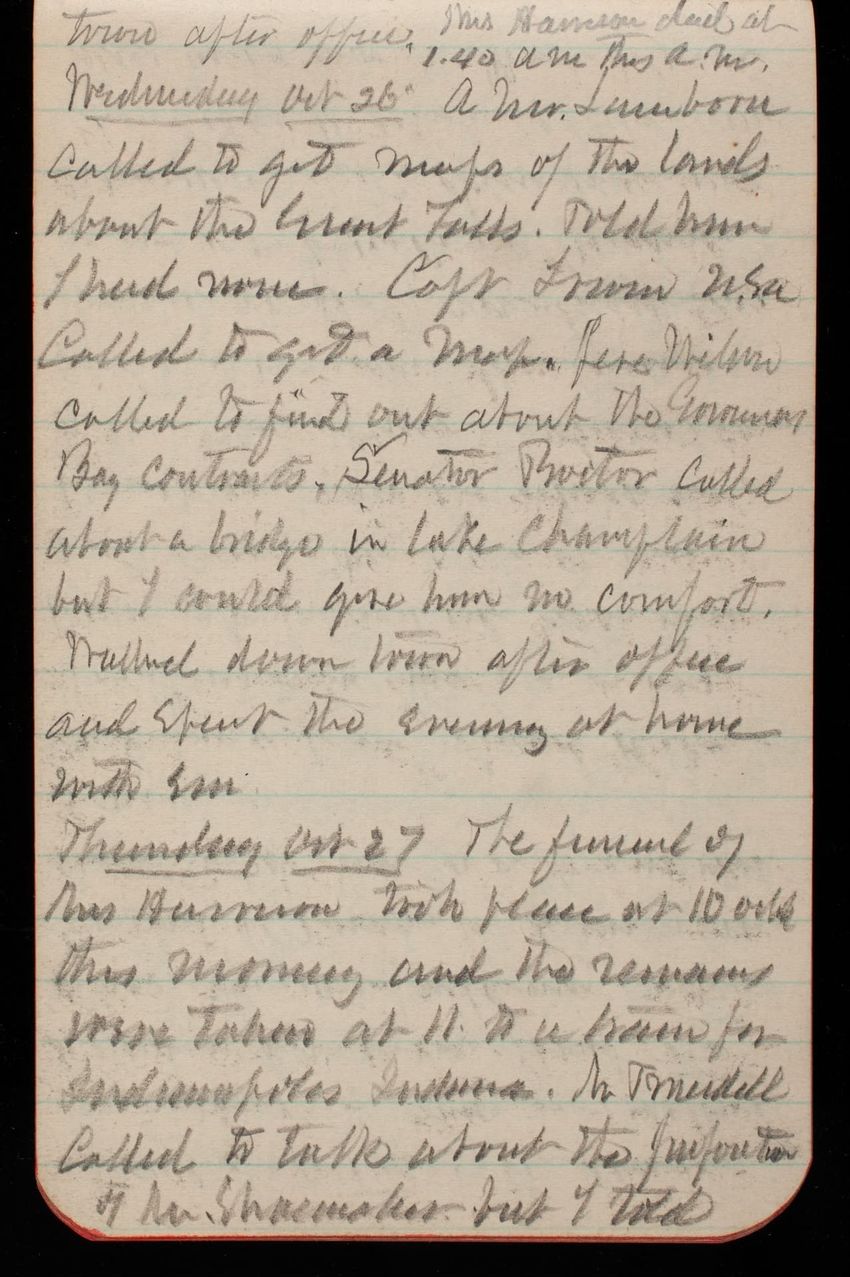 town after office. Mrs Harrison died at
1.40 am this a.m.
Wednesday Oct 26 A Mr.
called to get maps of the lands
about the Great Falls. Told him
I had none. Capt Irwin USA
Called to get a map. Jere Wilson
called to find out about the Governors
Bay contracts. Senator Proctor called
about a bridge in lake Champlain
but I could give him no comfort.
Walked down town after office
and spent the evening at home
with Em
Thursday Oct 27 The funeral of
Mrs Harrison took place at 10 oclk
this morning and the remains
were taken at 11. to a train for
Indianapolis Indiana. Mr
Called to talk about the
of Mr. Shoemaker but I told